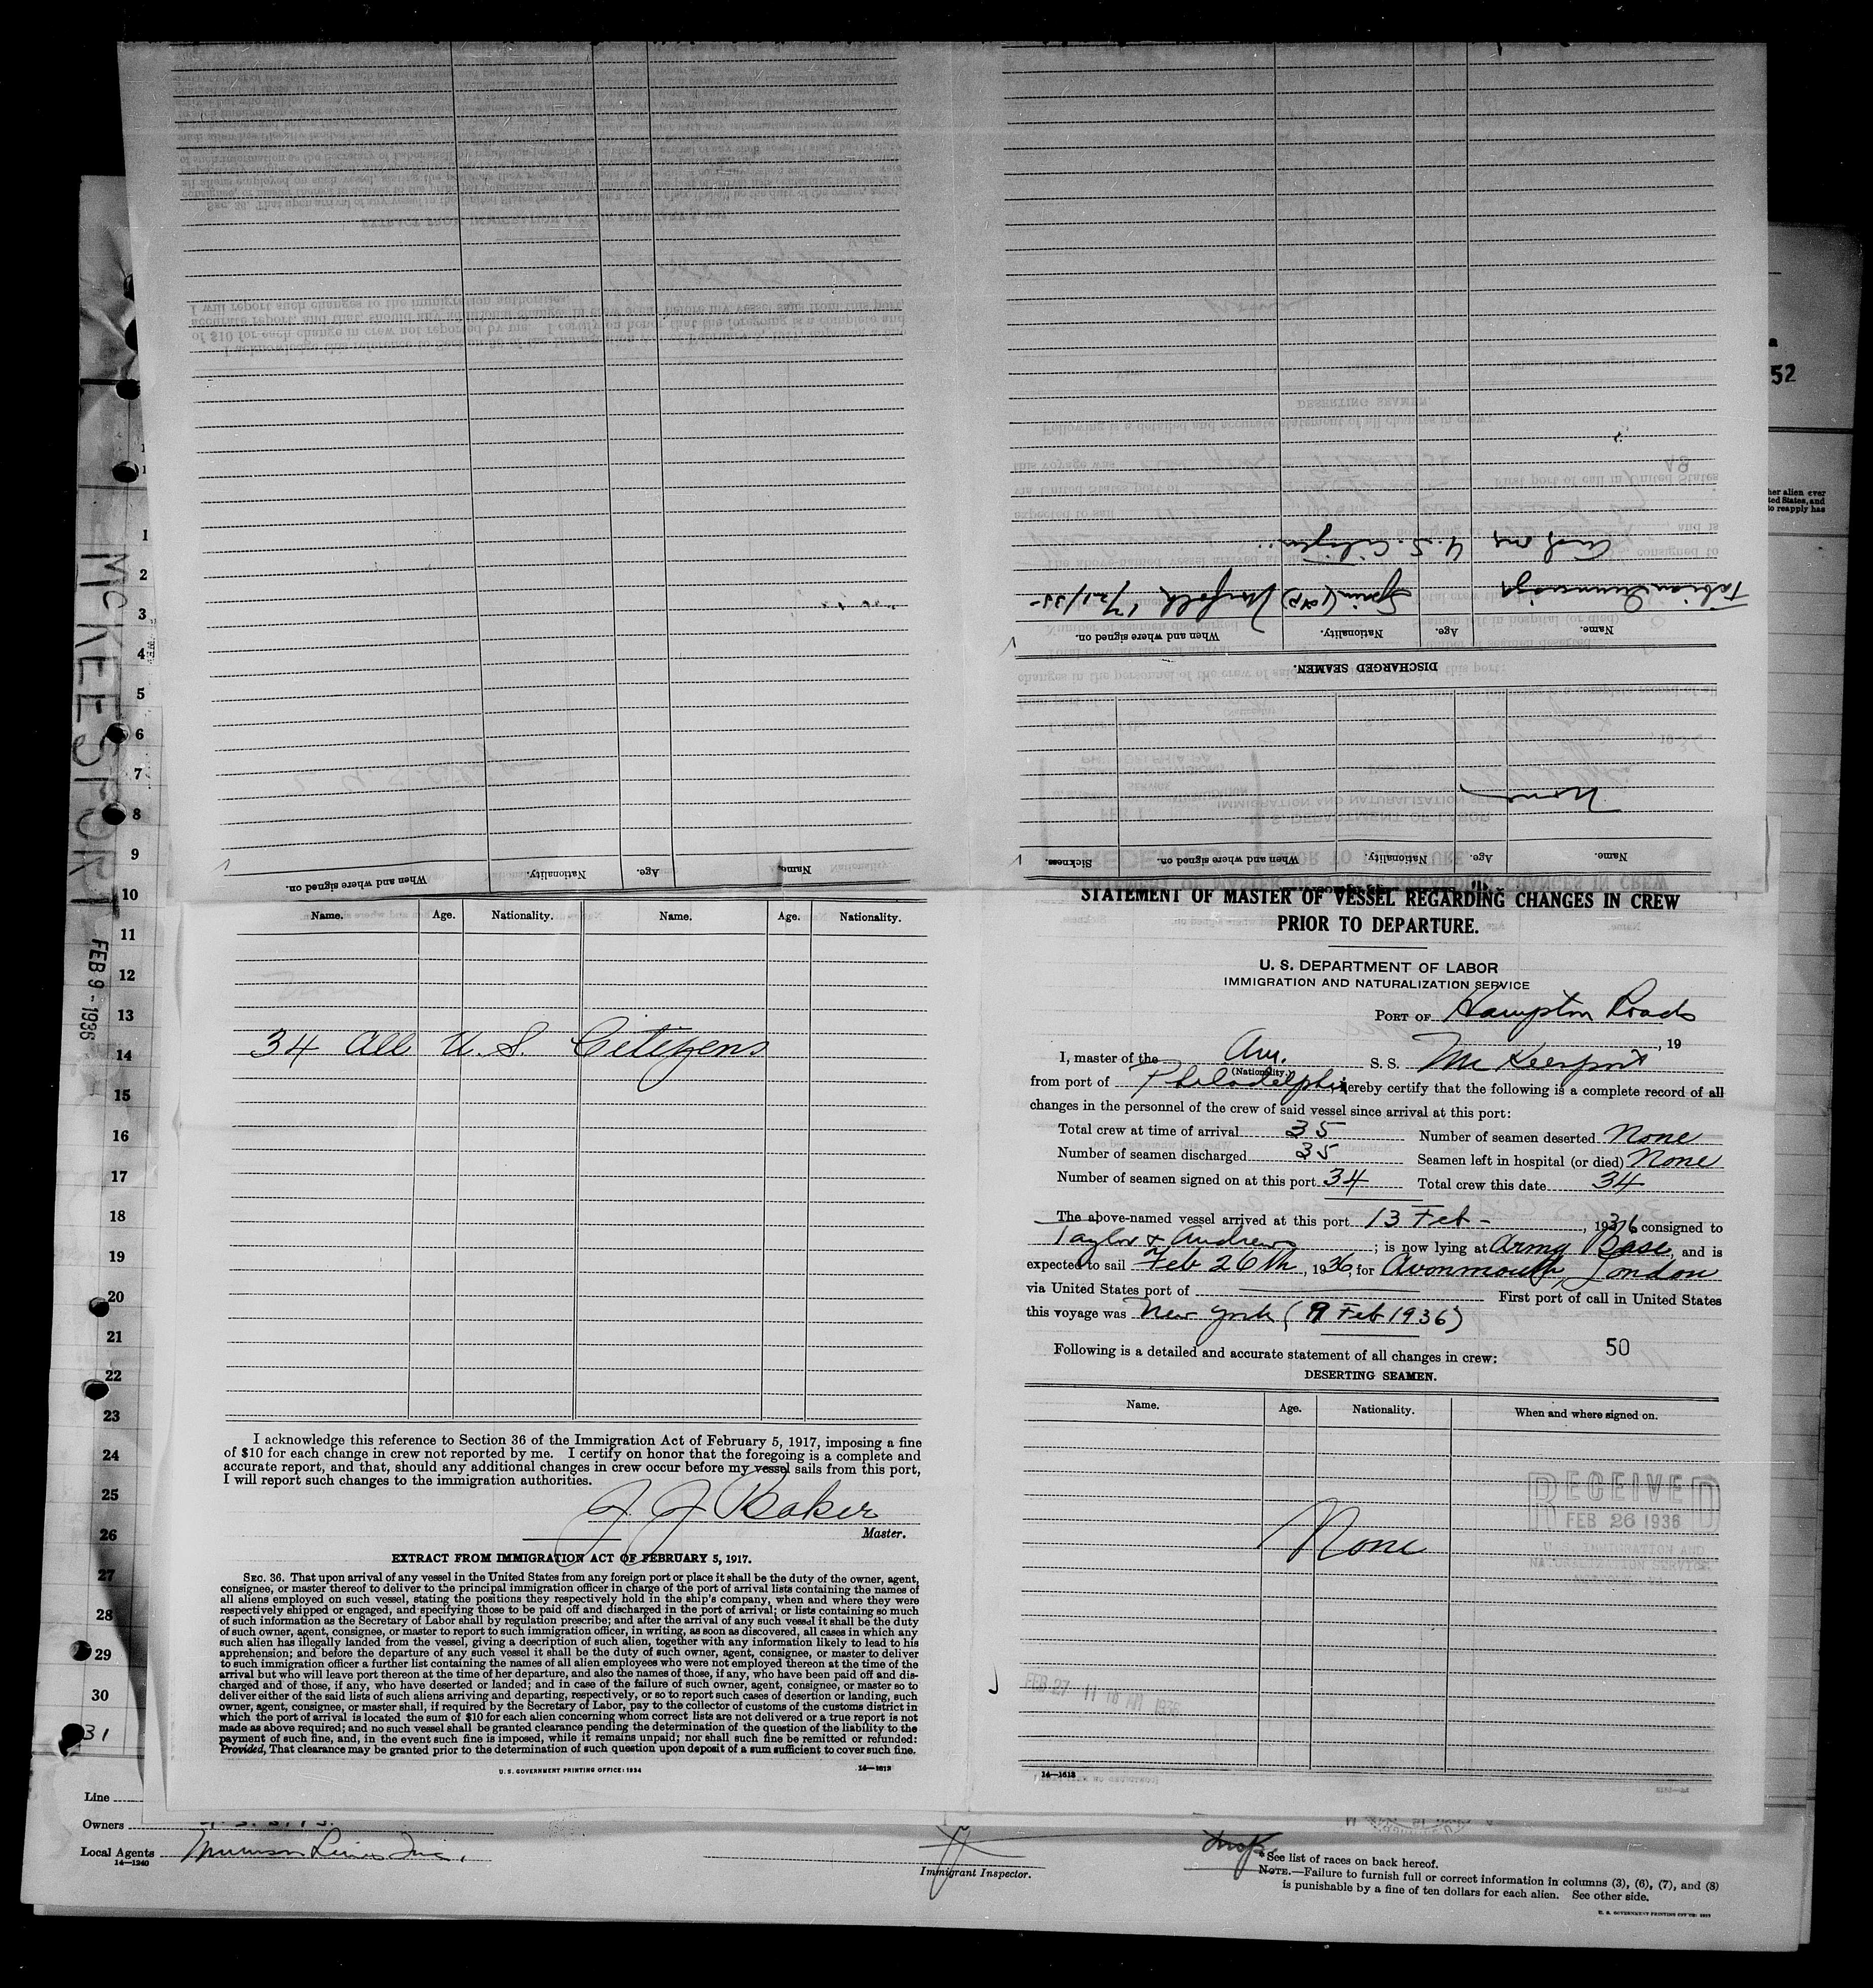 MCKEESPORT
FEB 9 - 1936
52
her alien ever
ted States, and
to reapply has
1
2
3
4
5
6
7
8
9
10
11
12
13
14
15
16
17
18
19
20
21
22
23
24
25
26
27
28
29
30
31
DISCHARGED SEAMEN.
Name. Age. Nationality. When and where signed on.
Spain (1st P) Norfolk 1/21/35-
and any U. S. Citizens
Name. Age. Nationality. When and where signed on. Sickness.
None
Name. Age. Nationality. When and where signed on.
Name. Age. Nationality. Name. Age. Nationality.
34 All U. S. Citizens
I acknowledge this reference to Section 36 of the Immigration Act of February 5, 1917, imposing a fine
of $10 for each change in crew not reported by me. I certify on honor that the foregoing is a complete and
accurate report, and that, should any additional changes in crew occur before my vessel sails from this port,
I will report such changes to the immigration authorities.
J J Baker
Master.
EXTRACT FROM IMMIGRATION ACT OF FEBRUARY 5, 1917.
SEC. 36. That upon arrival of any vessel in the United States from any foreign port or place it shall be the duty of the owner, agent,
consignee, or master thereof to deliver to the principal immigration officer in charge of the port of arrival lists containing the names of
all aliens employed on such vessel, stating the positions they respectively hold in the ship's company, when and where they were
respectively shipped or engaged, and specifying those to be paid off and discharged in the port of arrival; or lists containing so much
of such information as the Secretary of Labor shall by regulation prescribe; and after the arrival of any such vessel it shall be the duty
of such owner, agent, consignee, or master to report to such immigration officer, in writing, as soon as discovered, all cases in which any
such alien has illegally landed from the vessel, giving a description of such alien, together with any information likely to lead to his
apprehension; and before the departure of any such vessel it shall be the duty of such owner, agent, consignee, or master to deliver
to such immigration officer a further list containing the names of all alien employees who were not employed thereon at the time of the
arrival but who will leave port thereon at the time of her departure, and also the names of those, if any, who have been paid off and dis-
charged and of those, if any, who have deserted or landed; and in case of the failure of such owner, agent, consignee, or master so to
deliver either of the said lists of such aliens arriving and departing, respectively, or so to report such cases of desertion or landing, such
owner, agent, consignee, or master shall, if required by the Secretary of Labor, pay to the collector of customs of the customs district in
which the port of arrival is located the sum of $10 for each alien concerning whom correct lists are not delivered or a true report is not
made as above required; and no such vessel shall be granted clearance pending the determination of the question of the liability to the
payment of such fine, and, in the event such fine is imposed, while it remains unpaid; nor shall such fine be remitted or refunded:
Provided, That clearance may be granted prior to the determination of such question upon deposit of a sum sufficient to cover such fine.
U. S. GOVERNMENT PRINTING OFFICE: 1934 14—1613
STATEMENT OF MASTER OF VESSEL REGARDING CHANGES IN CREW
PRIOR TO DEPARTURE.
U. S. DEPARTMENT OF LABOR
IMMIGRATION AND NATURALIZATION SERVICE
PORT OF Hampton Roads
, 19
I, master of the Am. S. S. McKeesport
(Nationality)
from port of Philadelphia hereby certify that the following is a complete record of all
changes in the personnel of the crew of said vessel since arrival at this port:
Total crew at time of arrival 35 Number of seamen deserted None
Number of seamen discharged 35 Seamen left in hospital (or died) None
Number of seamen signed on at this port 34 Total crew this date 34
The above-named vessel arrived at this port 13 Feb - , 1936 consigned to
Taylor & Andrews ; is now lying at Army Base, and is
expected to sail Feb 26th, 1936, for Avonmouth, London
via United States port of First port of call in United States
this voyage was New York (9 Feb 1936)
50
Following is a detailed and accurate statement of all changes in crew:
DESERTING SEAMEN.
Name. Age. Nationality. When and where signed on.
None
RECEIVED
FEB 26 1936
U.S. IMMIGRATION AND
NATURALIZATION SERVICE
FEB 27 11 16 AM 1936
14—1613
Line
Owners
Local Agents Munson Line Inc.
14—1240
Immigrant Inspector.
*See list of races on back hereof.
NOTE.—Failure to furnish full or correct information in columns (3), (6), (7), and (8)
is punishable by a fine of ten dollars for each alien. See other side.
U. S. GOVERNMENT PRINTING OFFICE